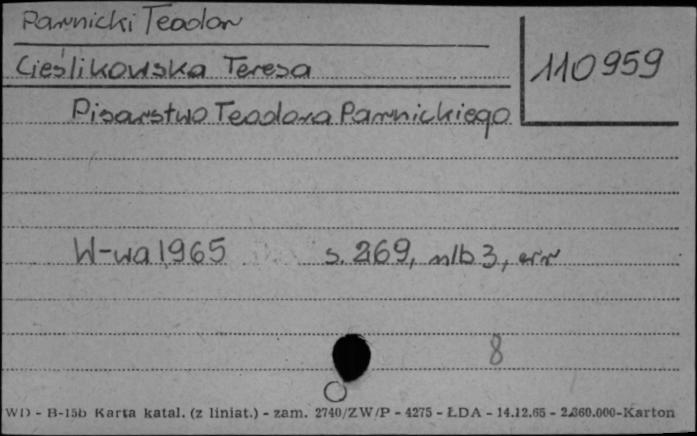 Parnicki Teodor
Cieślikowska Teresa
110959
Pisarstwo Teodora Parnickiego
W-wa 1965 s. 269, nlb 3, err
8
WD - B-15b Karta katal. (z liniat.) - zam. 2740/ZW/P - 4275 - ŁDA - 14.12.65 - 2.360.000-Karton